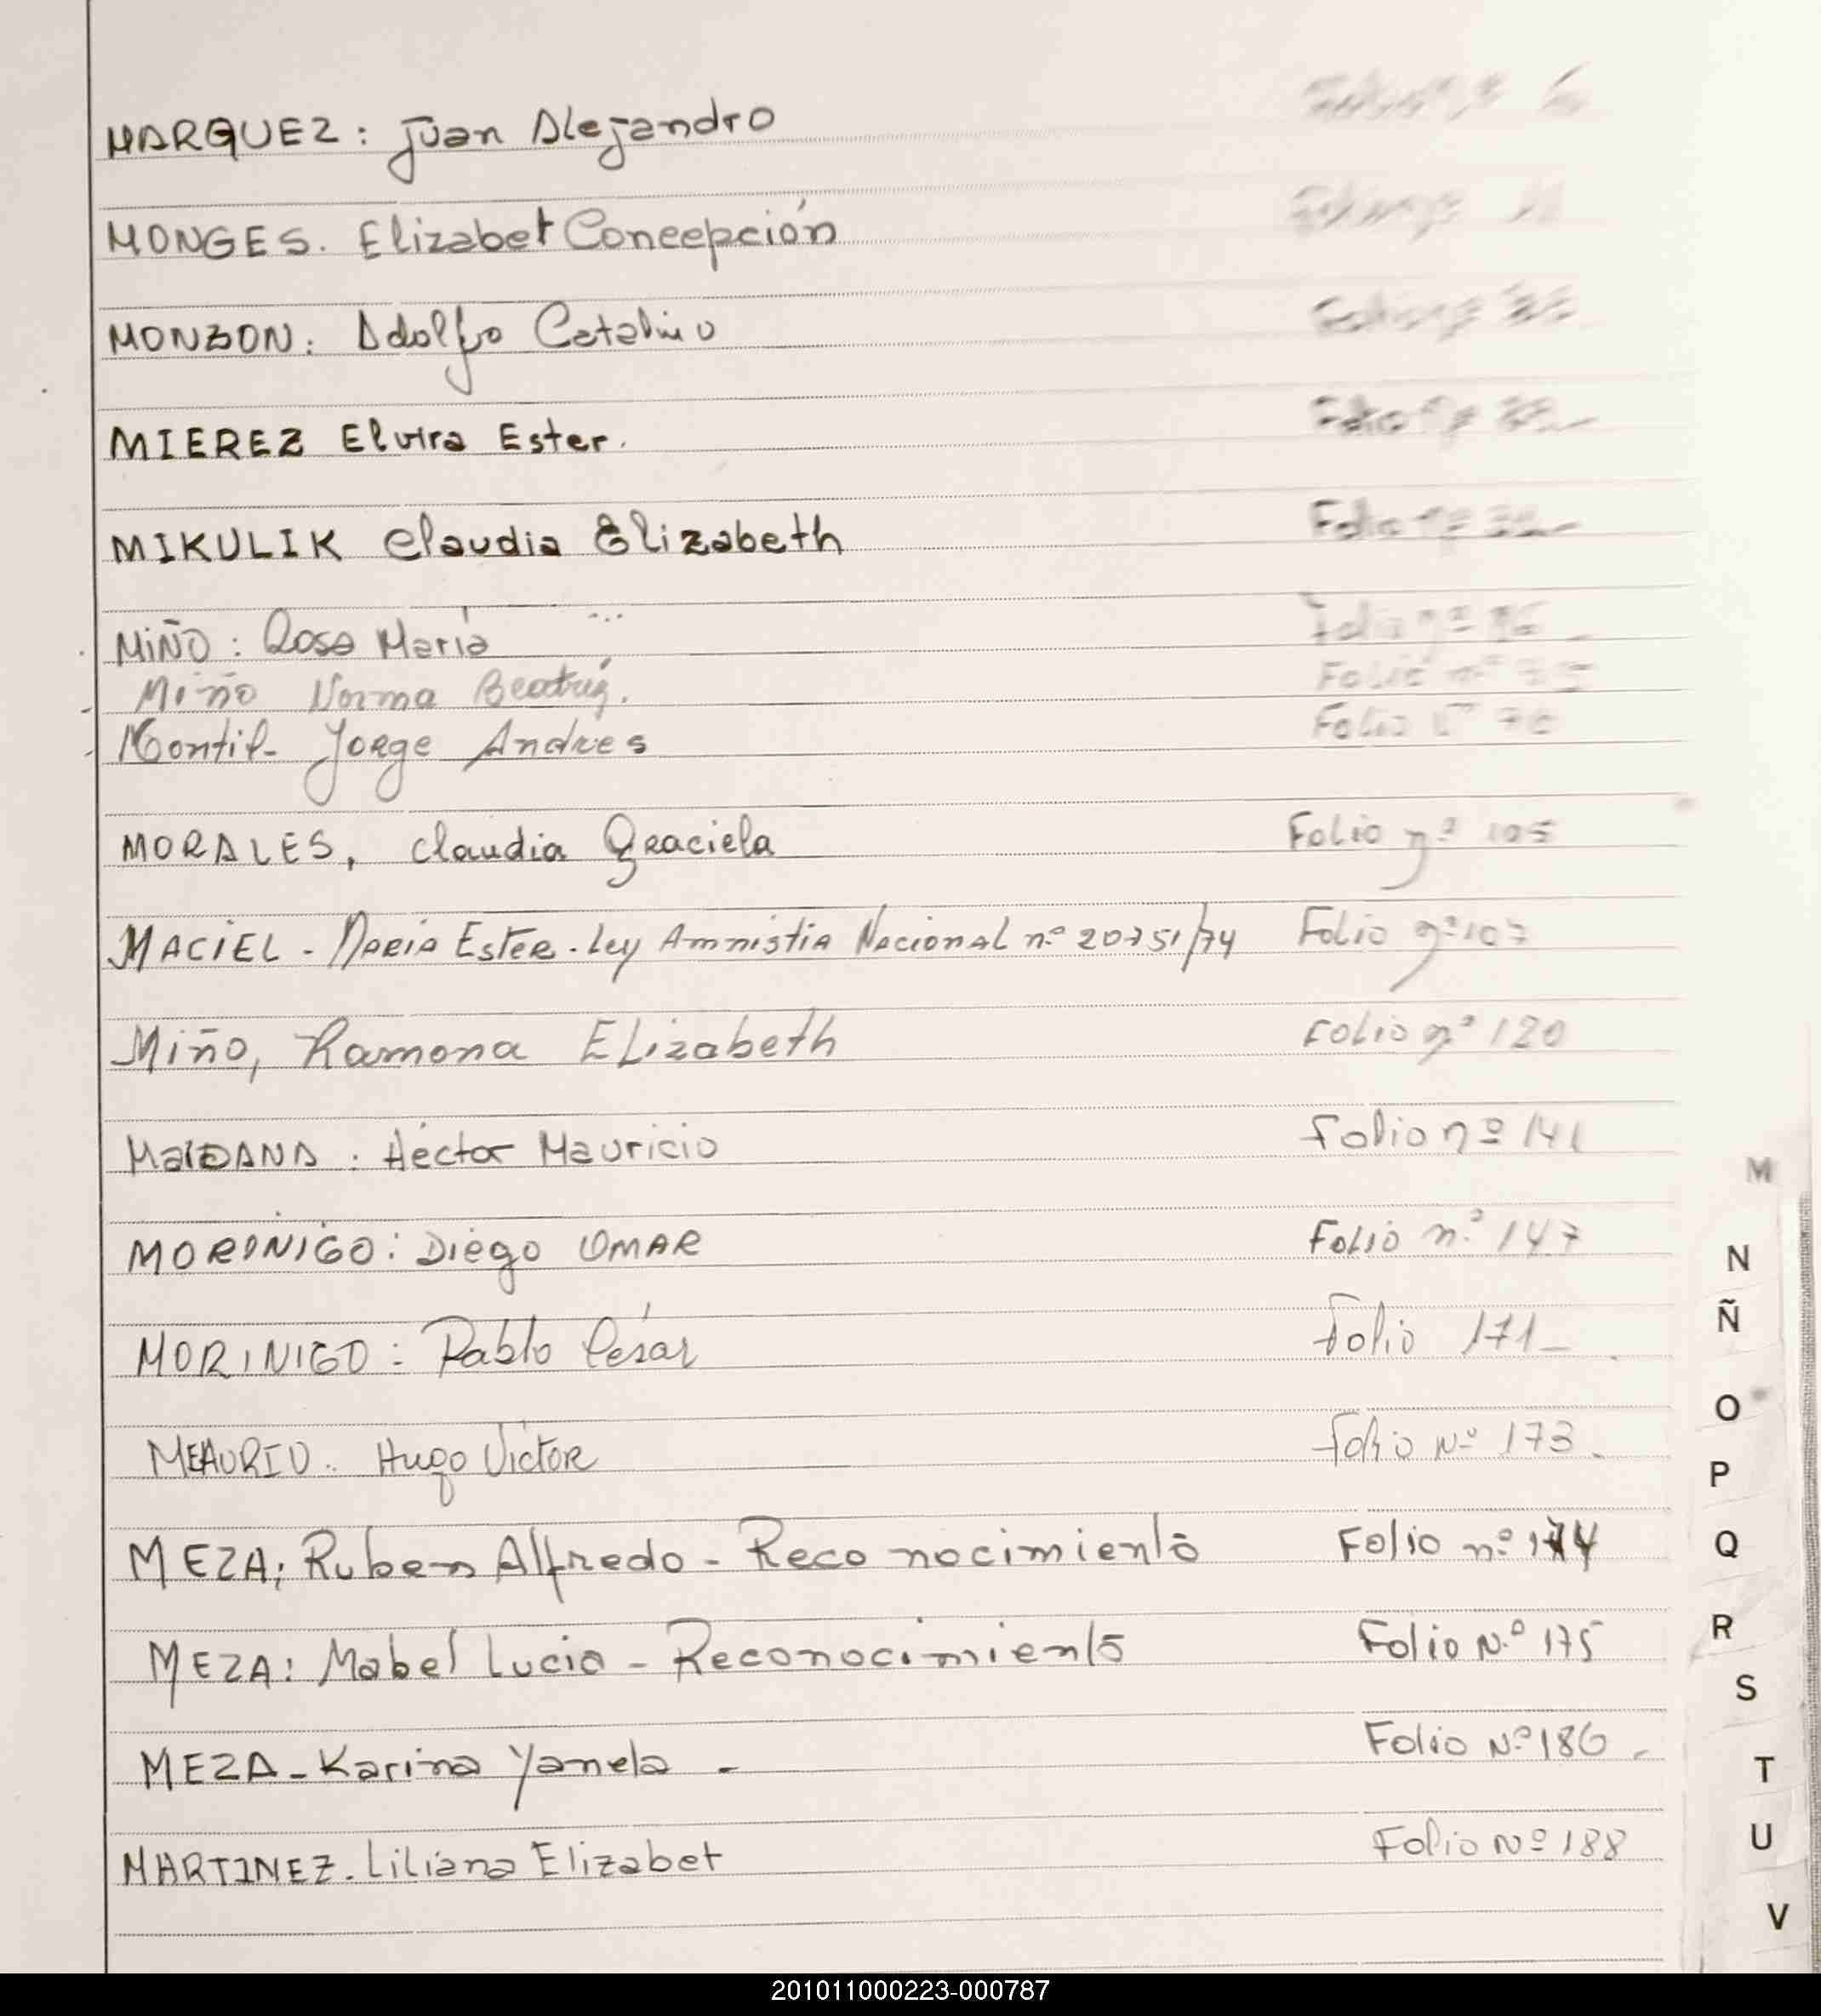 MARQUEZ: Juan Alejandro
MONGES. Elizabet Concepción
MONZON: Adolfo Catalino
MIEREZ Elvira Ester. Folio nº
MIKULIK Claudia Elizabeth Folio nº 32-
MIÑO: Rosa María Folio nº
Miño Norma Beatriz. Folio nº
Montiel Jorge Andres Folio nº
MORALES, Claudia Graciela Folio nº 105
MACIEL - MARIA ESTER. Ley Amnistia Nacional nº 20751/74 Folio nº 107
Miño, Ramona ELizabeth Folio nº 120
MaIDANA: Héctor Mauricio Folio nº 141
MORINIGO: Diego OMAR Folio nº 147
MORINIGO: Pablo César Folio 171-
MEAURIO: Hugo Victor Folio Nº 173.
MEZA; Ruben Alfredo - Reconocimiento Folio nº 174
MEZA: Mabel Lucia - Reconocimiento Folio N.º 175
MEZA - Karina Yanela - Folio Nº 186 -
MARTINEZ. Liliana Elizabet Folio Nº 188
M
N
Ñ
O
P
Q
R
S
T
U
V
201011000223-000787